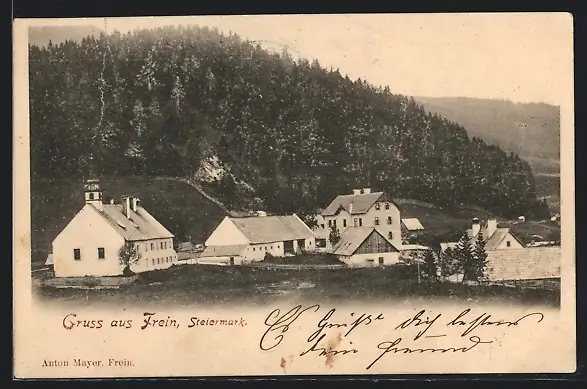 Gruss aus Frein, Steiermark.
Es Grüße dich bestens
dein freund
Anton Mayer, Frein.